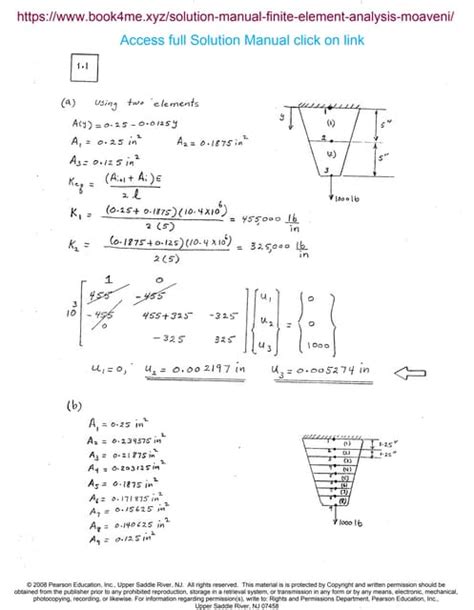 https://www.book4me.xyz/solution-manual-finite-element-analysis-moaveni/
Access full Solution Manual click on link
1.1
(a) Using two elements
A(y) = 0.25 - 0.0125y
A₁ = 0.25 in² A₂ = 0.1875 in²
A₃ = 0.125 in²
Keq = (Ai+1 + Ai)E / 2l
K₁ = (0.25 + 0.1875)(10.4×10⁶) / 2(5) = 455,000 lb/in
K₂ = (0.1875 + 0.125)(10.4×10⁶) / 2(5) = 325,000 lb/in
y 1 (1) 5"
2 (2) 5"
3
1000 lb
1 0
455 -455 u₁ 0
10³ -455 455+325 -325 u₂ = 0
0 -325 325 u₃ 1000
u₁ = 0, u₂ = 0.002197 in u₃ = 0.005274 in
(b)
A₁ = 0.25 in²
A₂ = 0.234375 in²
A₃ = 0.21875 in²
A₄ = 0.203125 in²
A₅ = 0.1875 in²
A₆ = 0.171875 in²
A₇ = 0.15625 in²
A₈ = 0.140625 in²
A₉ = 0.125 in²
(1) 1.25"
(2) 1.25"
(3)
(4)
(5)
(6)
(7)
(8)
1000 lb
© 2008 Pearson Education, Inc., Upper Saddle River, NJ. All rights reserved. This material is protected by Copyright and written permission should be
obtained from the publisher prior to any prohibited reproduction, storage in a retrieval system, or transmission in any form or by any means, electronic, mechanical,
photocopying, recording, or likewise. For information regarding permission(s), write to: Rights and Permissions Department, Pearson Education, Inc.,
Upper Saddle River, NJ 07458